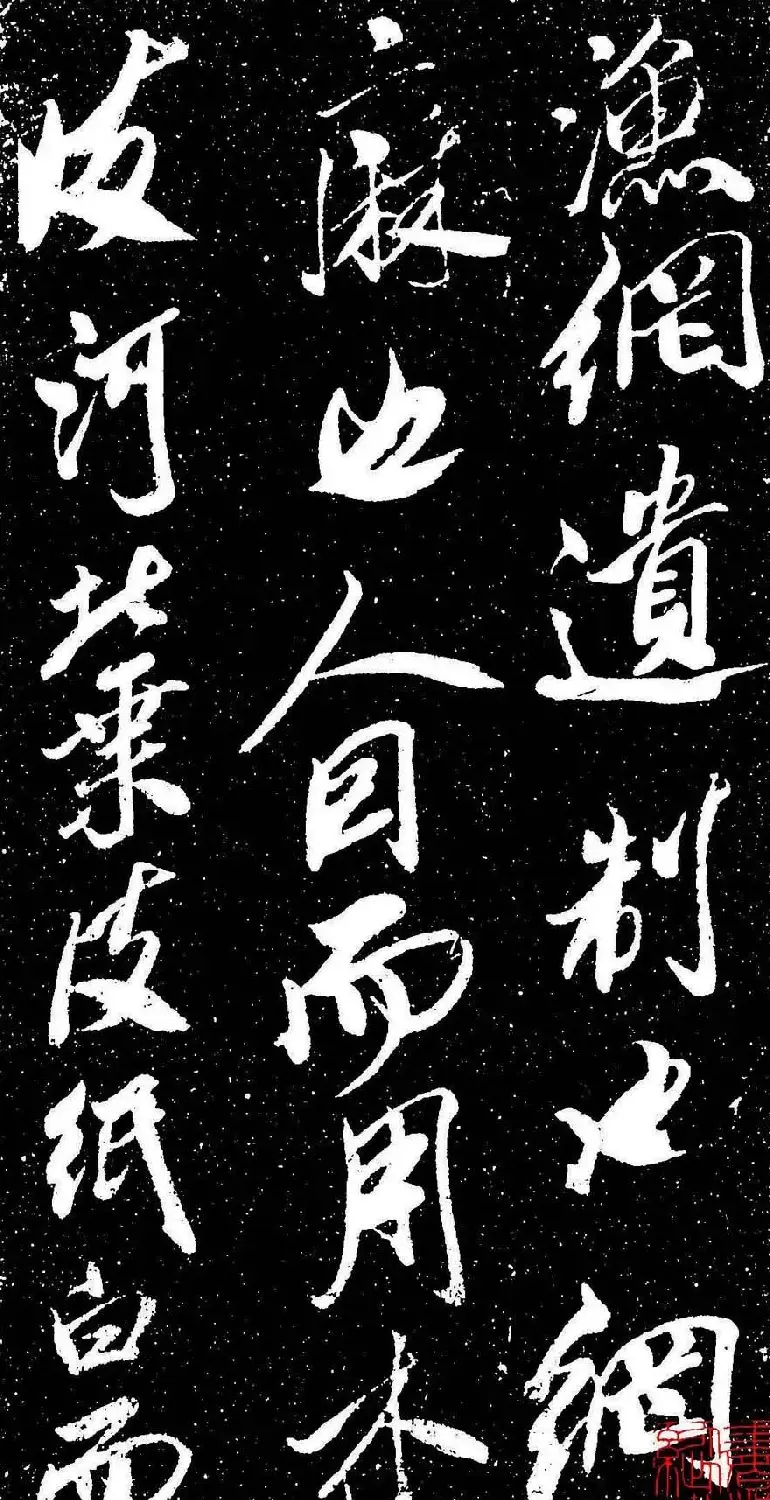 漁網遺制也網
麻也人因而用木
皮河北桑皮紙白而